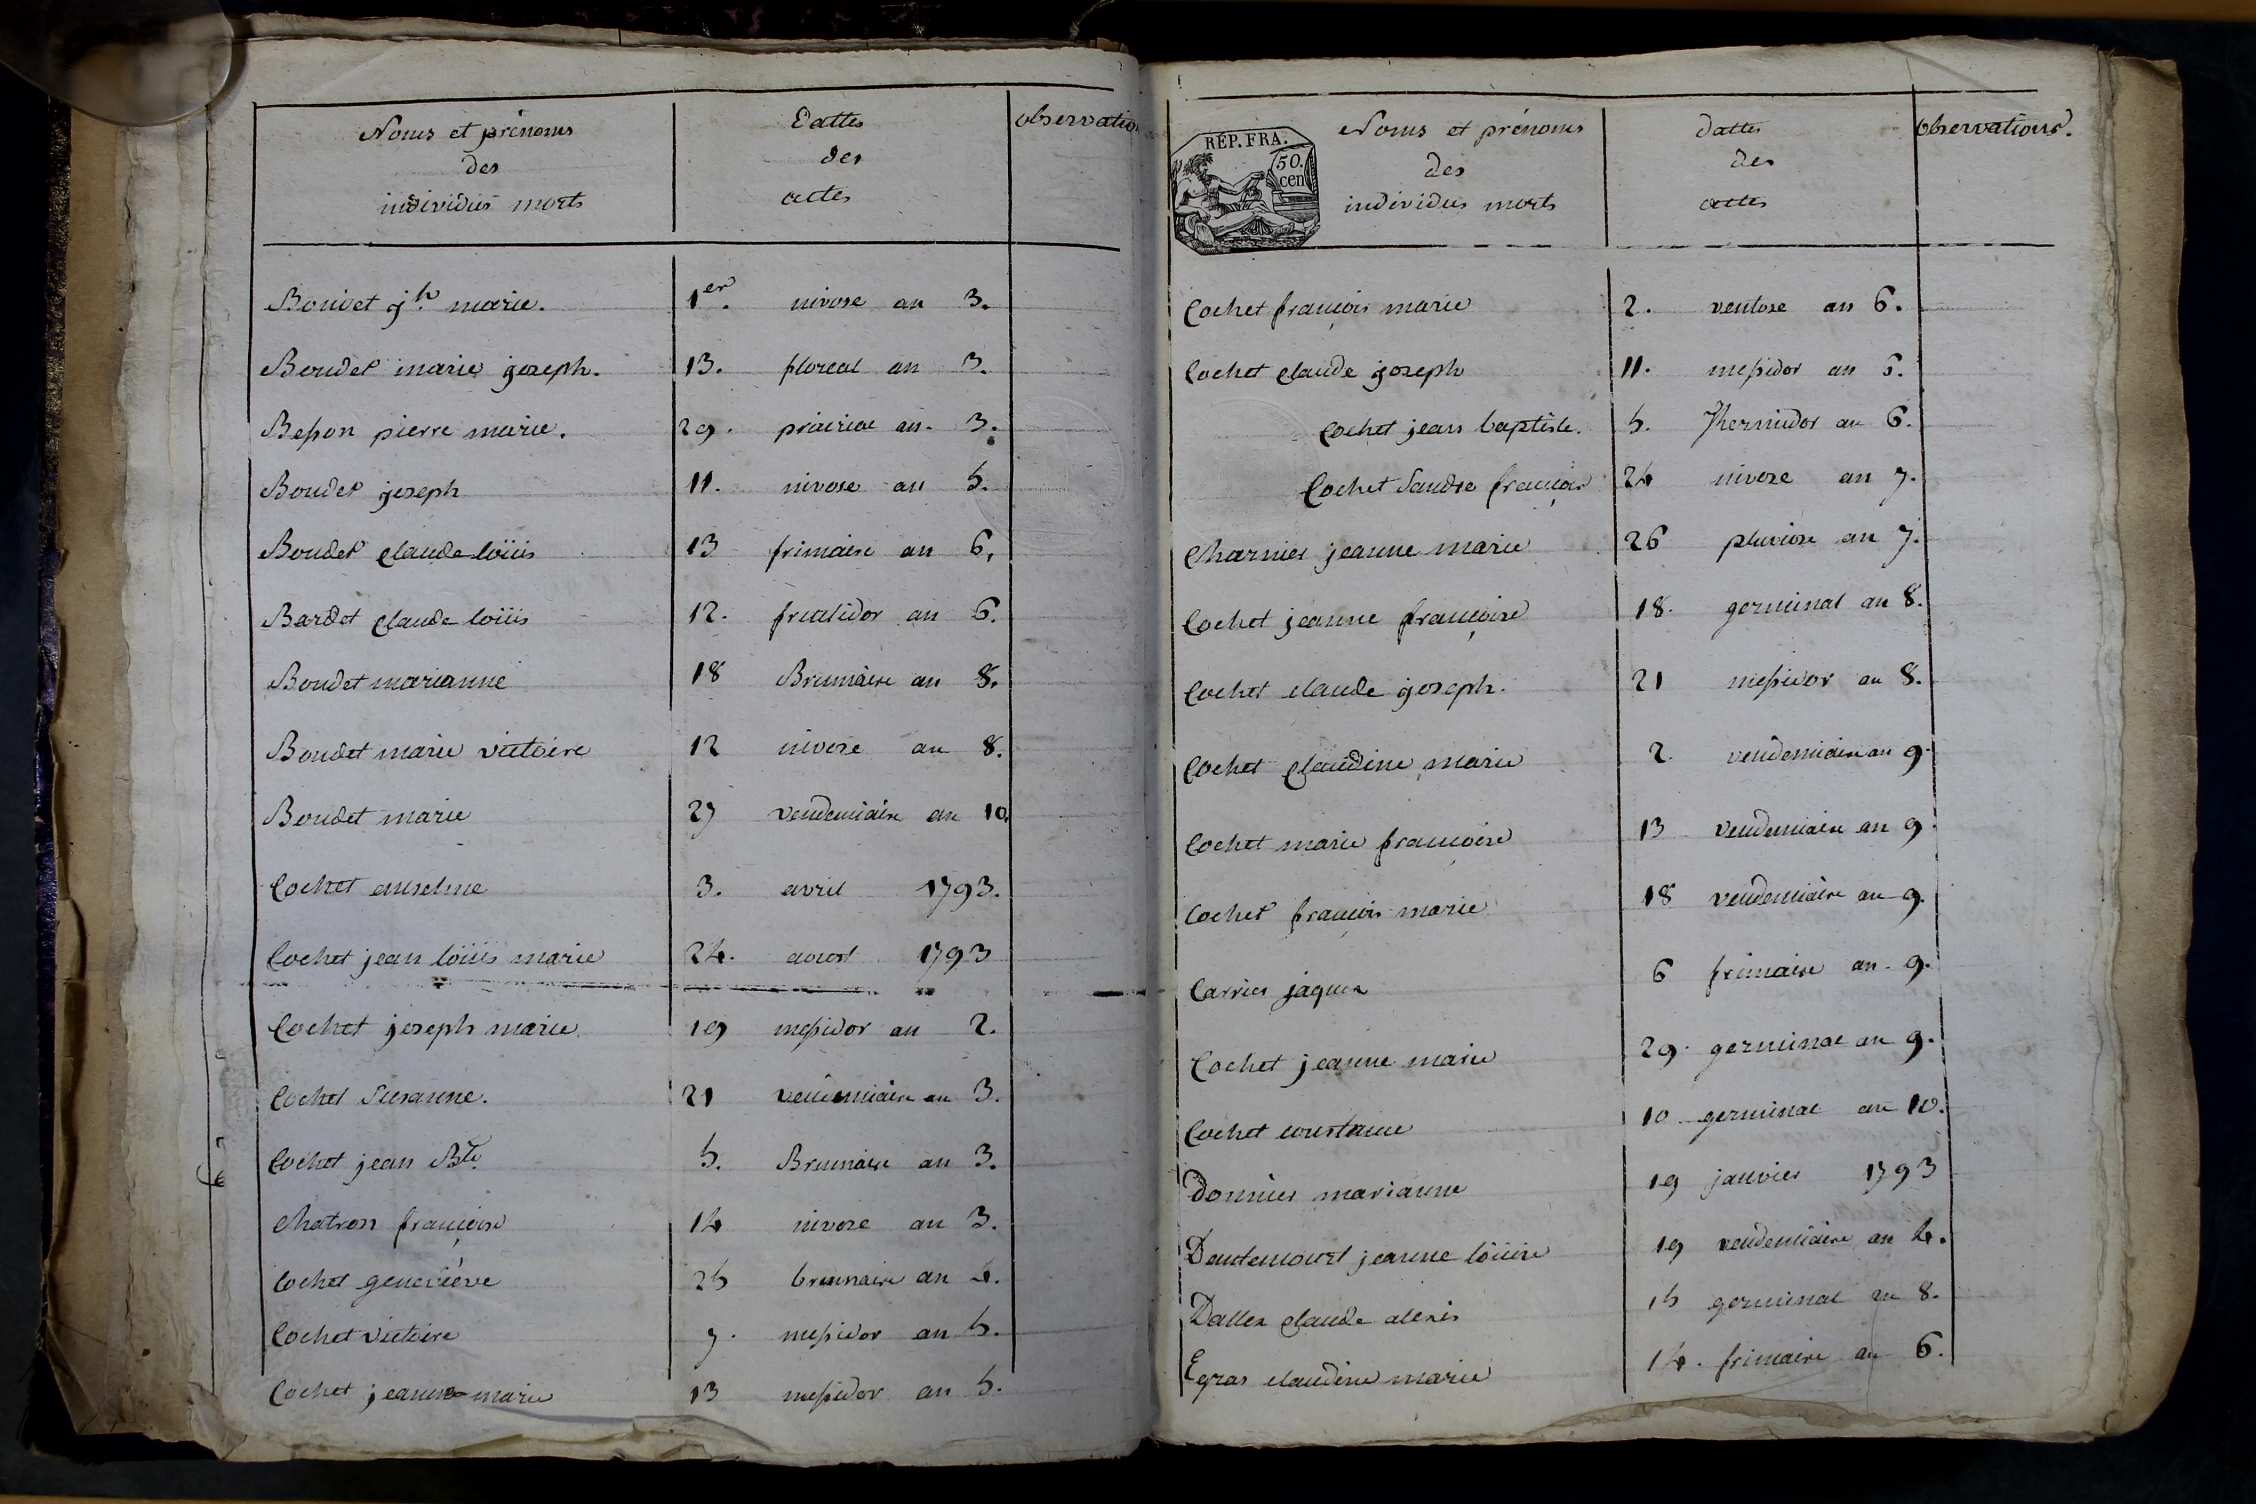 Noms et prénoms
des
individus morts
Dattes
des
actes
observation
Bouvet jh. marie.
1er. nivose an 3.
Boudet marie joseph.
13. floreal an 3.
Besson pierre marie.
29. prairial an 3.
Boudet joseph
11. nivose an 5.
Boudet claude loüis
13 frimaire an 6.
Bardet claude loüis
12. fructidor an 6.
Boudet marianne
18 Brumaire an 8.
Boudet marie victoire
12 nivose an 8.
Boudet marie
27 vendemiaire an 10.
Cochet anselme
3. avril 1793.
Cochet jean loüis marie
24. aoust 1793
Cochet joseph marie
19 messidor an 2.
Cochet Susanne.
21 vendemiaire an 3.
Cochet jean Bte.
5. Brumaire an 3.
Chatron françoise
14 nivose an 3.
Cochet geneviéve
25 brumaire an 4.
Cochet victoire
7. messidor an 5.
Cochet jeanne marie
13 messidor an 5.
RÉP. FRA.
50.
cen
Noms et prénoms
des
individus morts
dattes
des
actes
observations.
Cochet françois marie
2. ventose an 6.
Cochet claude joseph
11. messidor an 6.
Cochet jean baptiste.
5. Thermidor an 6.
Cochet françois
24 nivose an 7.
Charnier jeanne marie
26 pluviose an 7.
Cochet jeanne françoise
18. germinal an 8.
Cochet claude joseph.
21 messidor an 8.
Cochet claudine marie
2. vendemiaire an 9.
Cochet marie françoise
13 vendemiaire an 9.
Cochet françois marie
18 vendemiaire an 9.
Carrier jaques
6 frimaire an 9.
Cochet jeanne marie
29. germinal an 9.
Cochet constance
10 germinal an 10.
Donnier marianne
19 janvier 1793
jeanne loüise
19 vendemiaire an 4.
Dallex claude alexis
15 germinal an 8.
Egras claudine marie
14. frimaire an 6.